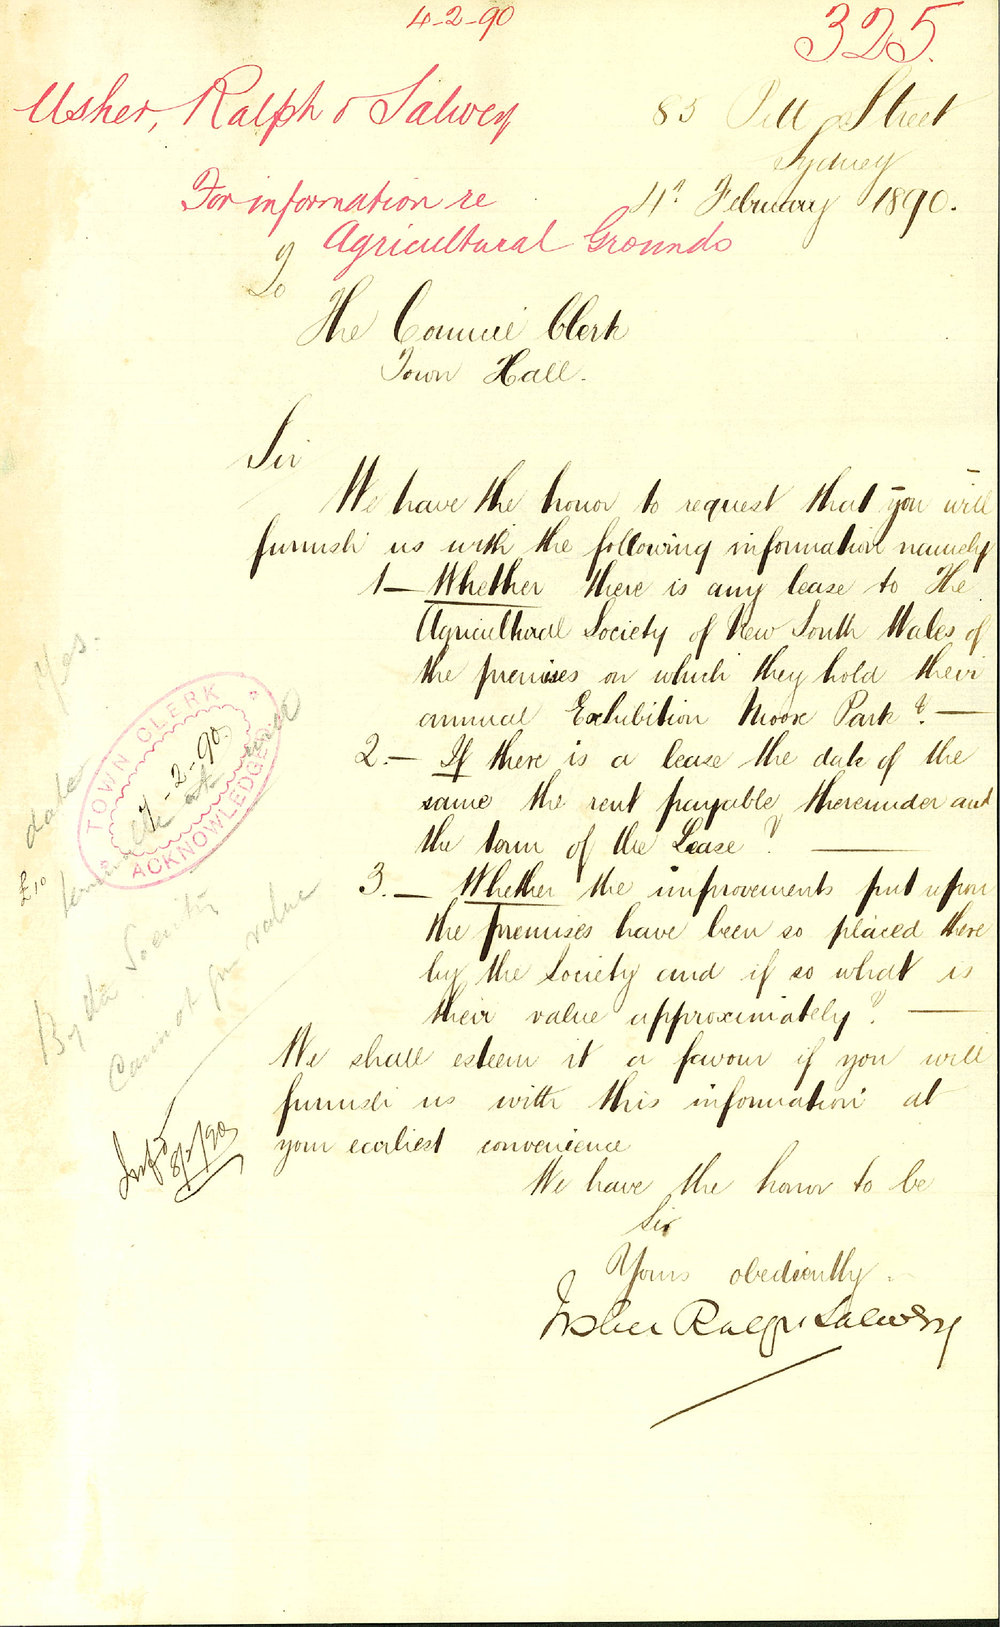 4-2-90
325.
Usher, Ralph & Salwey
83 Pitt Street
Sydney
For information re
4th February 1890.
Agricultural Grounds
To
The Council Clerk
Town Hall.
Sir
We have the honor to request that you will
furnish us with the following information namely
1— Whether there is any lease to The
Agricultural Society of New South Wales of
the premises on which they hold their
annual Exhibition Moore Park?. —
2.— If there is a lease the date of the
same the rent payable thereunder and
the term of the Lease? —
3.— Whether the improvements put upon
the premises have been so placed there
by the Society and if so what is
their value approximately?. —
We shall esteem it a favour if you will
furnish us with this information at
your earliest convenience
We have the honor to be
Sir
Yours obediently
Usher Ralph Salwey
Yes.
date
£10
TOWN CLERK
7-2-90
ACKNOWLEDGED
By the Society
Cannot give value
Infd 8/2/90